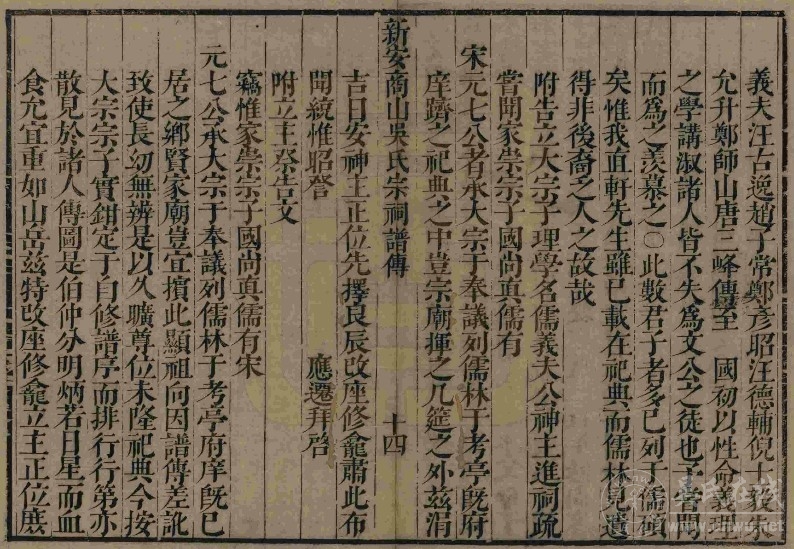 義夫汪古逸趙子常鄭彥昭汪德輔倪士毅朱
允升鄭師山唐三峰傳至　國初以性命義理
之學講淑諸人皆不失為文公之徒也予嘗聞
而為之羡慕之〇此數君子者多已列于儒碩
矣惟我直軒先生雖已載在祀典而儒林見遺
得非後裔之人之故哉
附告立大宗子理學名儒義夫公神主進祠疏
嘗聞家崇宗子國尚真儒有
宋元七公者承大宗于奉議列儒林于考亭既府
庠躋之祀典之中豈宗廟擯之几筵之外茲涓
新安商山吳氏宗祠譜傳　十四
吉日安神主正位先擇良辰改座修龕肅此布
聞統惟昭詧　應遷拜啓
附立主祭告文
竊惟家崇宗子國尚真儒有宋
元七公承大宗于奉議列儒林于考亭府庠既已
居之鄉賢家廟豈宜擯此顯祖向因譜傳差訛
致使長幼無辨是以久曠尊位未隆祀典今按
大宗宗子實鉗定于自修譜序而排行行第亦
散見於諸人傳圖是伯仲分明炳若日星而血
食允宜重如山岳茲特改座修龕立主正位庶
吳氏在线